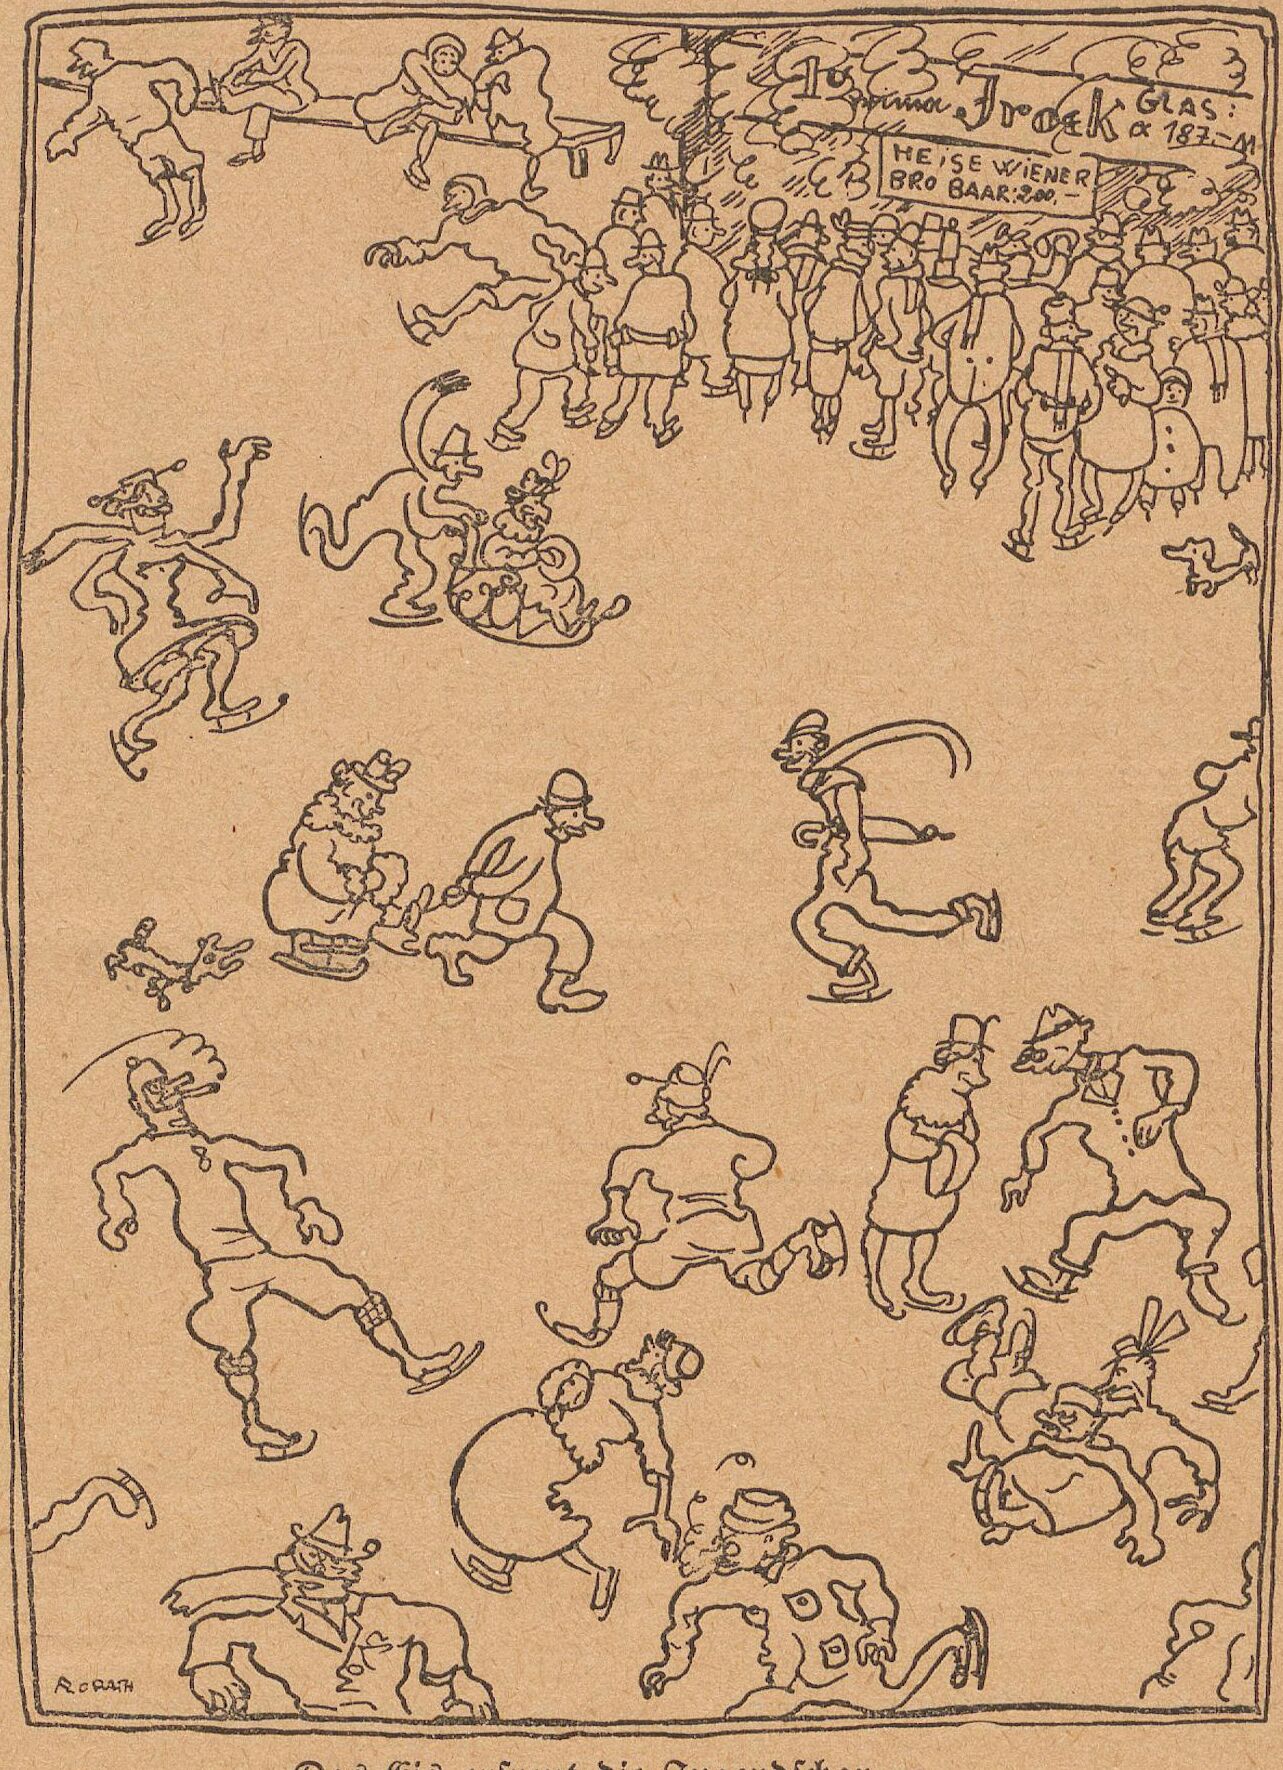 1a prima Grock GLAS:
a 187.- M
HEISE WiENER
BRO BAAR:200.-
RORATH